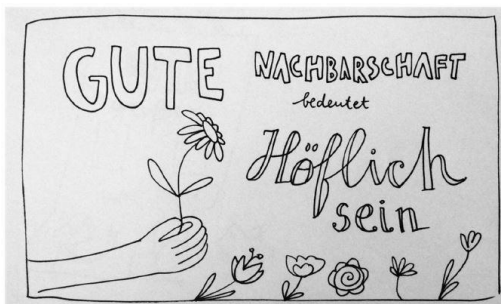 GUTE NACHBARSCHAFT
bedeutet
Höflich
sein